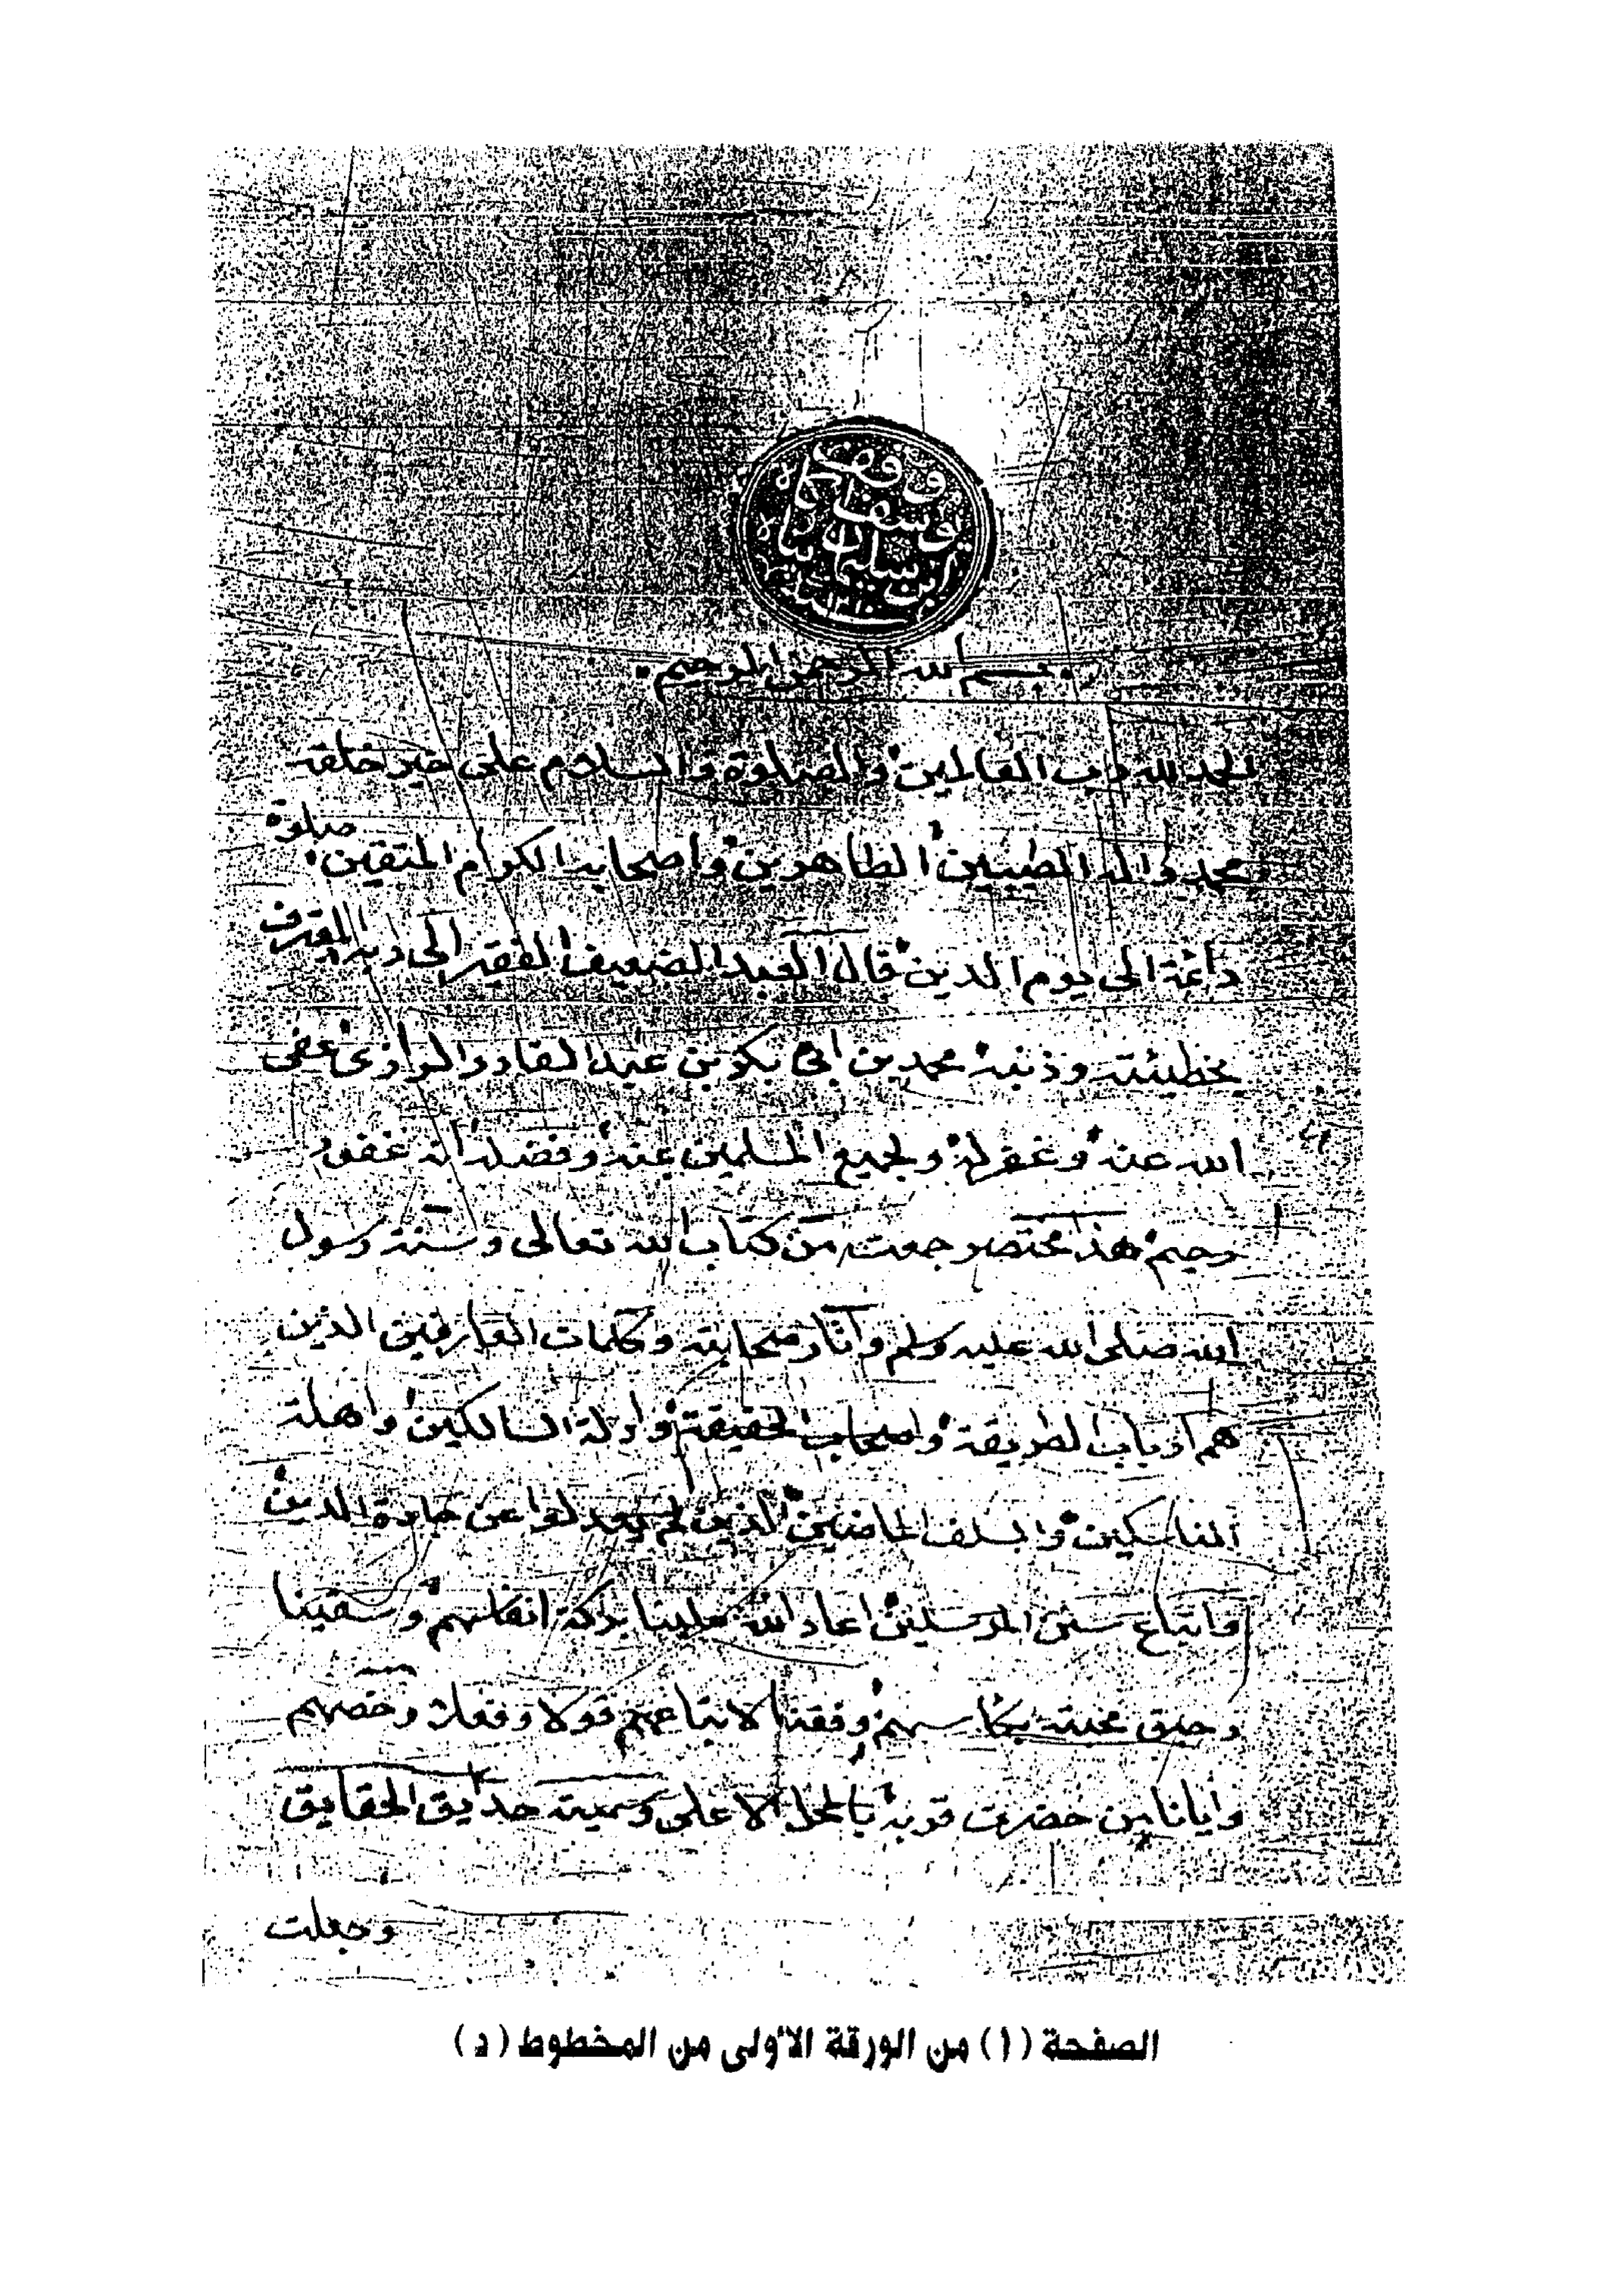 بسم الله الرحمن الرحيم
الحمد لله رب العالمين والصلوة والسلام على خير خلقه
محمد واله الطيبين الطاهرين واصحابه الكرام المتقين صلوة
دائمة الى يوم الدين قال العبد الضعيف الفقير الى ربه المعترف
بخطيئته وذنبه محمد بن ابى بكر بن عبد القادر الرازى عفى
الله عنه وغفر له ولجميع المسلمين بمنه وفضله انه غفور
رحيم هذا مختصر جمعت من كتاب الله تعالى وسنة رسول
الله صلى الله عليه وسلم وآثار صحابته وكلمات العارفين الذين
هم ارباب الطريقة واصحاب الحقيقة وادلة السالكين واهلة
الناسكين والسلف الماضين الذين لم يعدلوا عن جادة الدين
واتباع سنن المرسلين اعاد الله علينا بركة انفاسهم وسقينا
رحيق محبته بكأسهم ووفقنا لاتباعهم قولا وفعلا وخصهم
وايانا من حضرت قربه بالمحل الاعلى وسميته حدايق الحقايق
وجعلت
الصفحة (أ) من الورقة الأولى من المخطوط (د)